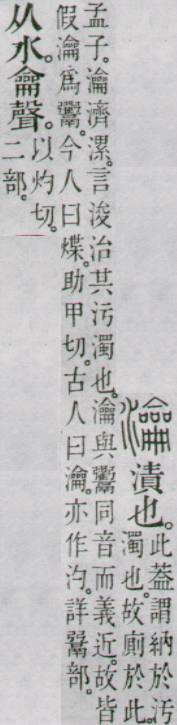 瀹漬也。此蓋謂納於污
濁也。故廁於此。
孟子。瀹濟漯。言浚治其污濁也。瀹與𩱲同音而義近。故皆
假瀹爲𩱲。今人曰煠。助甲切。古人曰瀹。亦作汋。詳䰜部。
从水龠聲。以灼切。
二部。